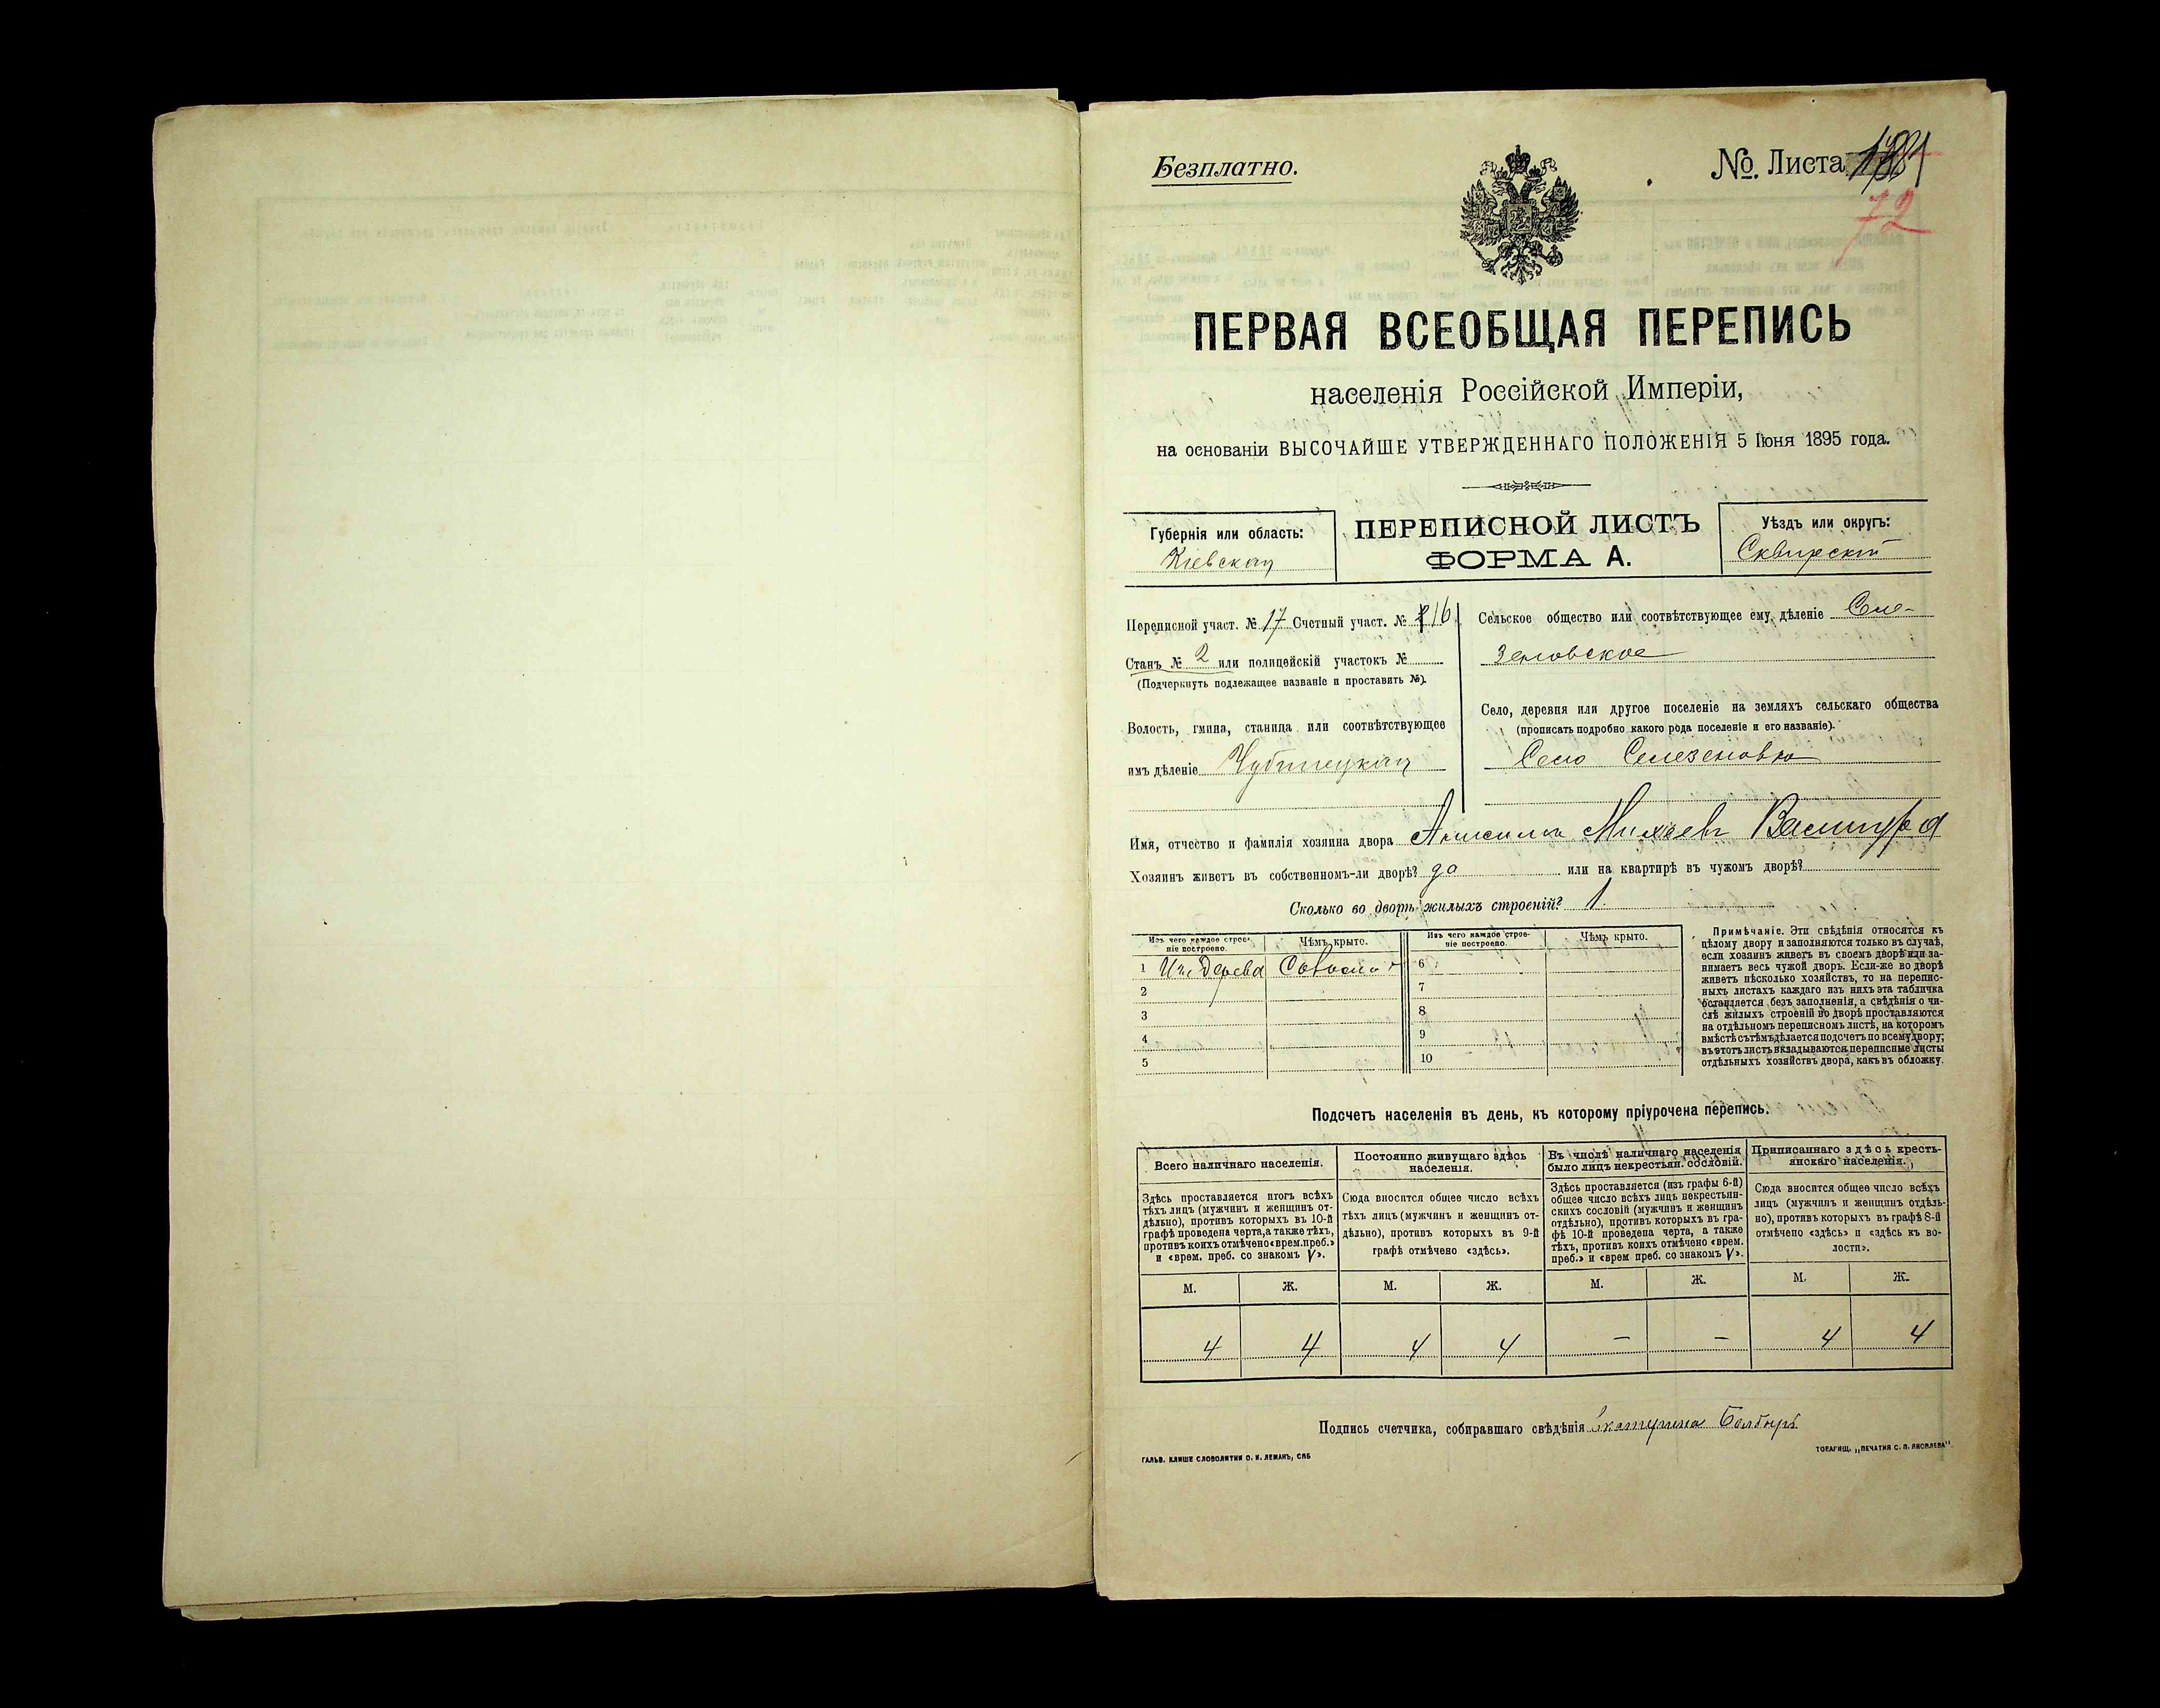 Безплатно.
№. Листа
72
ПЕРВАЯ ВСЕОБЩАЯ ПЕРЕПИСЬ
населенія Россійской Имперіи,
на основаніи ВЫСОЧАЙШЕ УТВЕРЖДЕННАГО ПОЛОЖЕНІЯ 5 Іюня 1895 года.
Губернія или область:
Кіевская
ПЕРЕПИСНОЙ ЛИСТЪ
ФОРМА А.
Уѣздъ или округъ:
Сквирскій
Переписной участ. № 17 Счетный участ. № 16
Станъ № 2 или полицейскій участокъ №
(Подчеркнуть подлежащее названіе и проставить №).
Волость, гмина, станица или соотвѣтствующее
имъ дѣленіе
Сельское общество или соотвѣтствующее ему дѣленіе Селе-
зеновское
Село, деревня или другое поселеніе на земляхъ сельскаго общества
(прописать подробно какого рода поселеніе и его названіе).
Село Селезеновка
Имя, отчество и фамилія хозяина двора
Хозяинъ живетъ въ собственномъ-ли дворѣ? да или на квартирѣ въ чужомъ дворѣ?
Сколько во дворѣ жилыхъ строеній? 1.
Изъ чего каждое строе-
ніе построено.
Чѣмъ крыто.
Изъ чего каждое строе-
ніе построено.
Чѣмъ крыто.
1 Изъ дерева Соломой 6
2 7
3 8
4 9
5 10
Примѣчаніе. Эти свѣдѣнія относятся къ
цѣлому двору и заполняются только въ случаѣ,
если хозяинъ живетъ въ своемъ дворѣ или за-
нимаетъ весь чужой дворъ. Если-же во дворѣ
живетъ нѣсколько хозяйствъ, то на перепис-
ныхъ листахъ каждаго изъ нихъ эта табличка
оставляется безъ заполненія, а свѣдѣнія о чи-
слѣ жилыхъ строеній во дворѣ проставляются
на отдѣльномъ переписномъ листѣ, на которомъ
вмѣстѣ съ тѣмъ дѣлается подсчетъ по всему двору;
въ этотъ листъ вкладываются переписные листы
отдѣльныхъ хозяйствъ двора, какъ въ обложку.
Подсчетъ населенія въ день, къ которому пріурочена перепись.
Всего наличнаго населенія.
Здѣсь проставляется итогъ всѣхъ
тѣхъ лицъ (мужчинъ и женщинъ от-
дѣльно), противъ которыхъ въ 10-й
графѣ проведена черта, а также тѣхъ,
противъ коихъ отмѣчено «врем. преб.»
и «врем. преб. со знакомъ V».
Постоянно живущаго здѣсь
населенія.
Сюда вносится общее число всѣхъ
тѣхъ лицъ (мужчинъ и женщинъ от-
дѣльно), противъ которыхъ въ 9-й
графѣ отмѣчено «здѣсь».
Въ числѣ наличнаго населенія
было лицъ некрестьян. сословій.
Здѣсь проставляется (изъ графы 6-й)
общее число всѣхъ лицъ некрестьян-
скихъ сословій (мужчинъ и женщинъ
отдѣльно), противъ которыхъ въ гра-
фѣ 10-й проведена черта, а также
тѣхъ, противъ коихъ отмѣчено «врем.
преб.» и «врем преб. со знакомъ V».
Приписаннаго здѣсь кресть-
янскаго населенія.
Сюда вносится общее число всѣхъ
лицъ (мужчинъ и женщинъ отдѣль-
но), противъ которыхъ въ графѣ 8-й
отмѣчено «здѣсь» и «здѣсь въ во-
лости».
М. Ж. М. Ж. М. Ж. М. Ж.
4 4 4 4 – – 4 4
Подпись счетчика, собиравшаго свѣдѣнія Екатерина
ГАЛЬВ. КЛИШЕ СЛОВОЛИТНИ О. И. ЛЕМАНЪ, СПБ
ТОВАРИЩ. „ПЕЧАТНЯ С. П. ЯКОВЛЕВА"